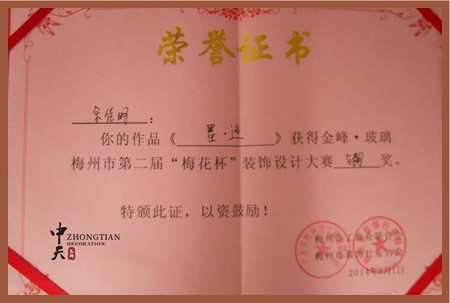 荣誉证书
余佳明：
你的作品《墨·道》获得金峰·玻璃
梅州市第二届“梅花杯”装饰设计大赛铜奖。
特颁此证，以资鼓励！
中天
ZHONGTIAN
DECORATION
梅州市工商业联合
梅州市装饰行业协会
2014年3月1日